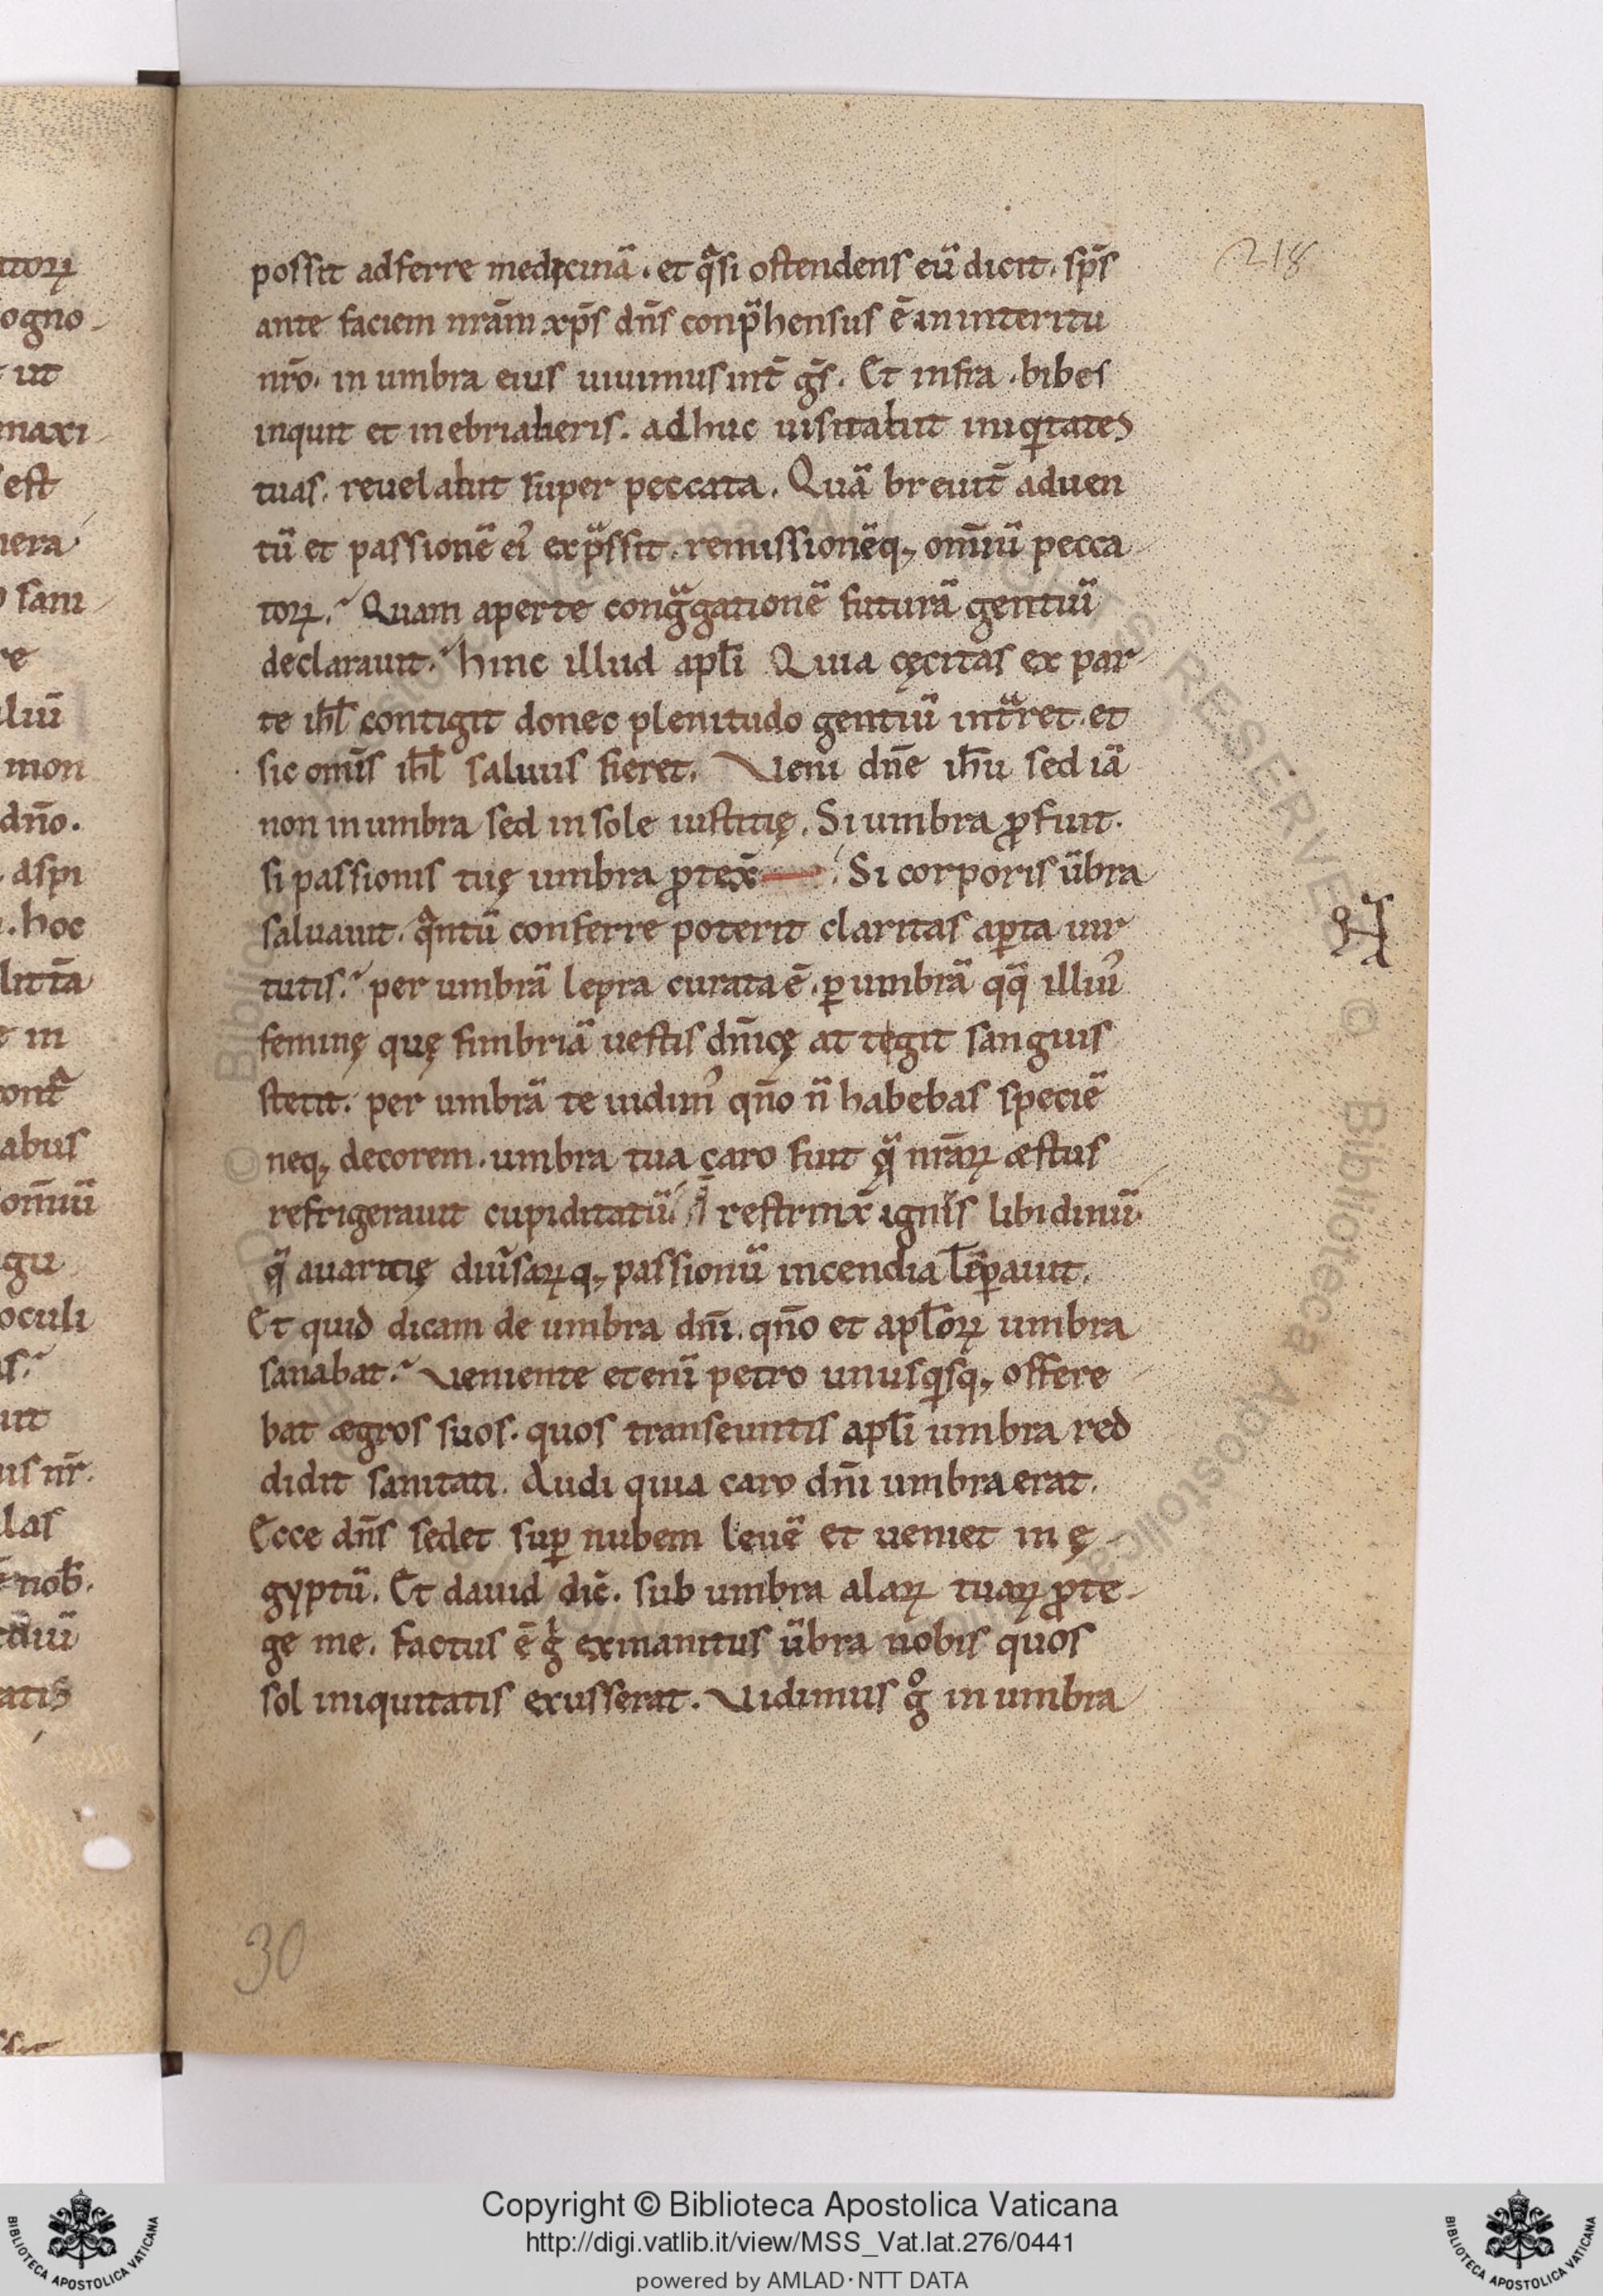 218
possit adferre medicinā. et qͣsi ostendens eū dicit. sp̄s
ante faciem nrām xp̄s dn̄s conp̄hensus ē in interitu
nrō. in umbra eius uiuimus int̄ gs̄. Et infra. bibes
inquit et inebriaberis. adhuc uisitabit iniqͥtates
tuas. reuelabit super peccata. Quā breuit̄ aduen
tū et passionē ei᾽ exp̄ssit. remissionēq; om̄iū pecca
toꝝ? Quam aperte congͣgationē futurā gentiū
declarauit? hinc illud apl̄i Quia cęcitas ex par
te ihl̄ contigit donec plenitudo gentiū intͣret. et
sic om̄is ihl̄ saluus fieret. Veni dn̄e ih̄u sed iā
non in umbra sed in sole iustitię. Si umbra ꝓfuit.
si passionis tuę umbra ꝓtex̄ Si corporis ūbra
saluauit. qͣntū conferre poterit claritas aꝑta uir
tutis? per umbrā lepra curata ē. ꝑ umbrā qq̄ illiu᾽
feminę quę fimbriā uestis dn̄icę at tegit sanguis
stetit. per umbrā te uidim᾽ qn̄o n̄ habebas speciē
neq; decorem. umbra tua caro fuit q̄ nrāꝝ æstus
refrigerauit cupiditatū. q̄ restrinx̄ ignis libidinū.
q̄ auaritię diuͥsaꝝq; passionū incendia tēꝑauit.
Et quid dicam de umbra dn̄i. qn̄o et apl̄oꝝ umbra
sanabat? Veniente etenī petro unusqͥsq; offere
bat ægros suos. quos transeuntis apl̄i umbra red
didit sanitati. Audi quia caro dn̄i umbra erat.
Ecce dn̄s sedet suꝑ nubem leuē et ueniet in ę
gyptū. Et dauid dic̄. sub umbra alaꝝ tuaꝝ ꝓte
ge me. factus ē gͥ exinanitus ūbra nobis quos
sol iniquitatis exusserat. Vidimus gͦ in umbra
30
Copyright © Biblioteca Apostolica Vaticana
http://digi.vatlib.it/view/MSS_Vat.lat.276/0441
powered by AMLAD·NTT DATA
BIBLIOTECA APOSTOLICA VATICANA
BIBLIOTECA APOSTOLICA VATICANA